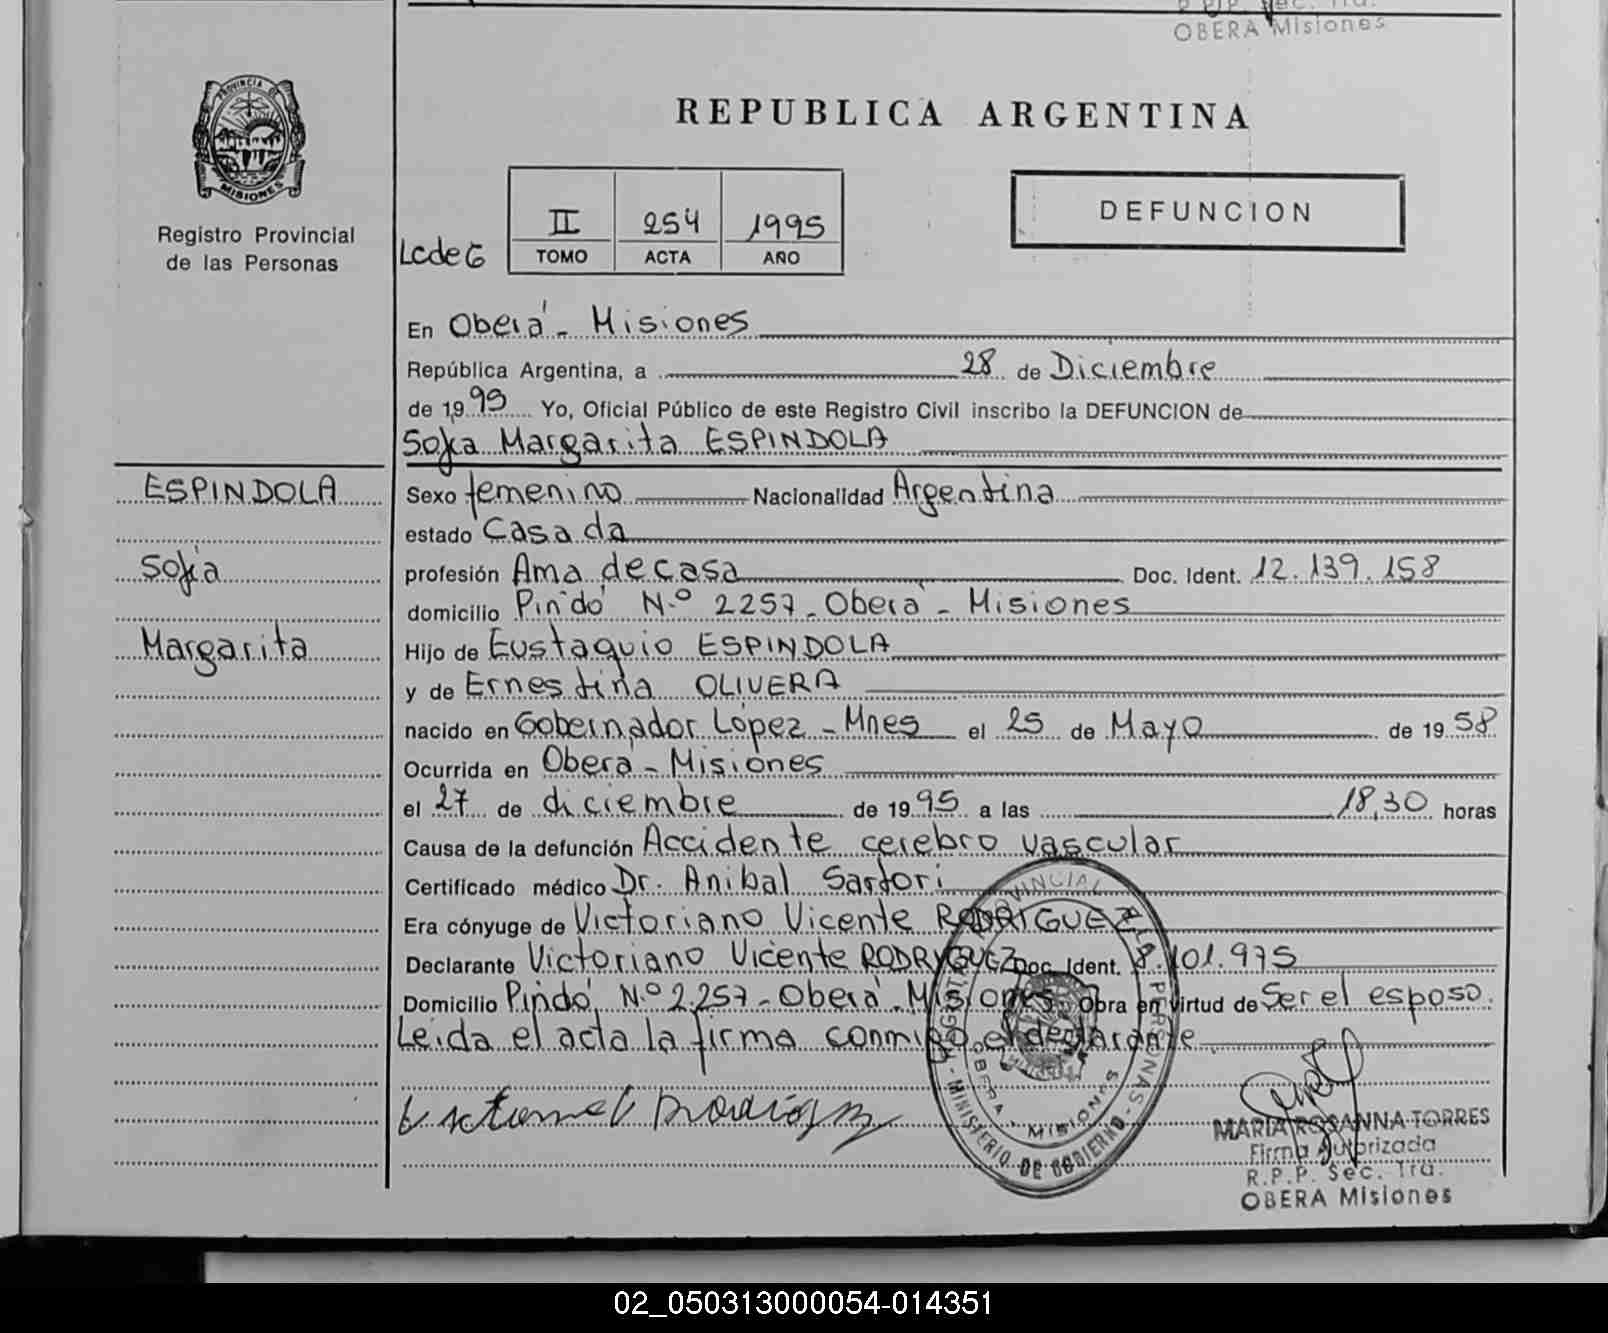 OBERA Misiones
PROVINCIA DE
MISIONES
Registro Provincial
de las Personas
REPUBLICA ARGENTINA
LcdeG
II 254 1995
TOMO ACTA AÑO
DEFUNCION
En Oberá - Misiones
República Argentina, a 28 de Diciembre
de 1995 Yo, Oficial Público de este Registro Civil inscribo la DEFUNCION de
Sofía Margarita ESPINDOLA
ESPINDOLA
Sofía
Margarita
Sexo femenino Nacionalidad Argentina
estado Casada
profesión Ama de casa Doc. Ident. 12.139.158
domicilio Pindó N.º 2257 - Oberá - Misiones
Hijo de Eustaquio ESPINDOLA
y de Ernestina OLIVERA
nacido en Gobernador López - Mnes el 25 de Mayo de 1958
Ocurrida en Oberá - Misiones
el 27 de diciembre de 1995 a las 18,30 horas
Causa de la defunción Accidente cerebro vascular
Certificado médico Dr. Anibal Sartori
Era cónyuge de Victoriano Vicente RODRIGUEZ
Declarante Victoriano Vicente RODRIGUEZ Doc. Ident. 8.101.975
Domicilio Pindó N.º 2.257 - Oberá - Misiones Obra en virtud de Ser el esposo.
Leída el acta la firma conmigo el declarante
MINISTERIO DE GOBIERNO
OBERA - MISIONES
MARIA ROSANNA TORRES
Firma Autorizada
R.P.P. Sec. 1ra.
OBERA Misiones
02_050313000054-014351